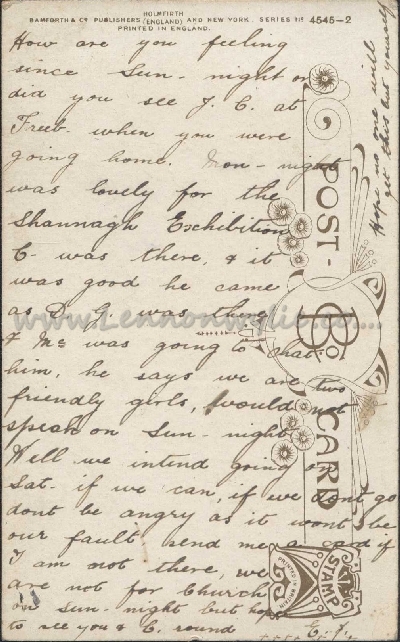 HOLMFIRTH
BAMFORTH & Co PUBLISHERS (ENGLAND) AND NEW YORK. SERIES No 4545-2
PRINTED IN ENGLAND.
How are you feeling
since Sun- night or
did you see J. C. at
Treeb. when you were
going home. Mon- night
was lovely for the
Shannagh Exhibition
C- was there, & it
was good he came
as D. G. was there
& Mc was going to chat
him, he says we are two
friendly girls, would not
speak on Sun- night
Well we intend going on
Sat- if we can, if we dont go
dont be angry as it wont be
our fault, send me a card if
I am not there, we
are not for Church
on Sun- night but hope
to see you & C. round
Hope no one will
get this but yourself
POST-CARD
B & Co
STAMP
PRINTED IN BRITAIN
www.Lennonwylie.co.